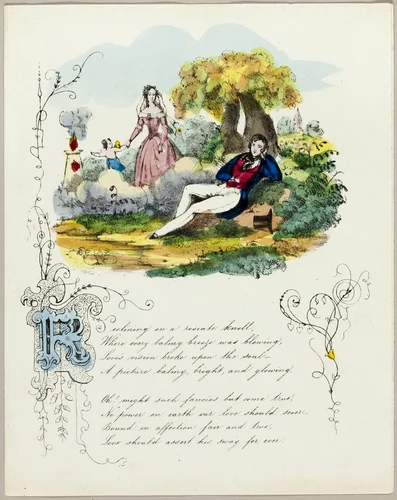 Reclining on a roseate knoll,
Where every balmy breeze was blowing,
Loves vision broke upon the soul—
A picture balmy, bright, and glowing.
Oh! might such fancies but come true,
No power on earth our love should sever.
Bound in affection fair and true,
Love should assert his sway for ever.